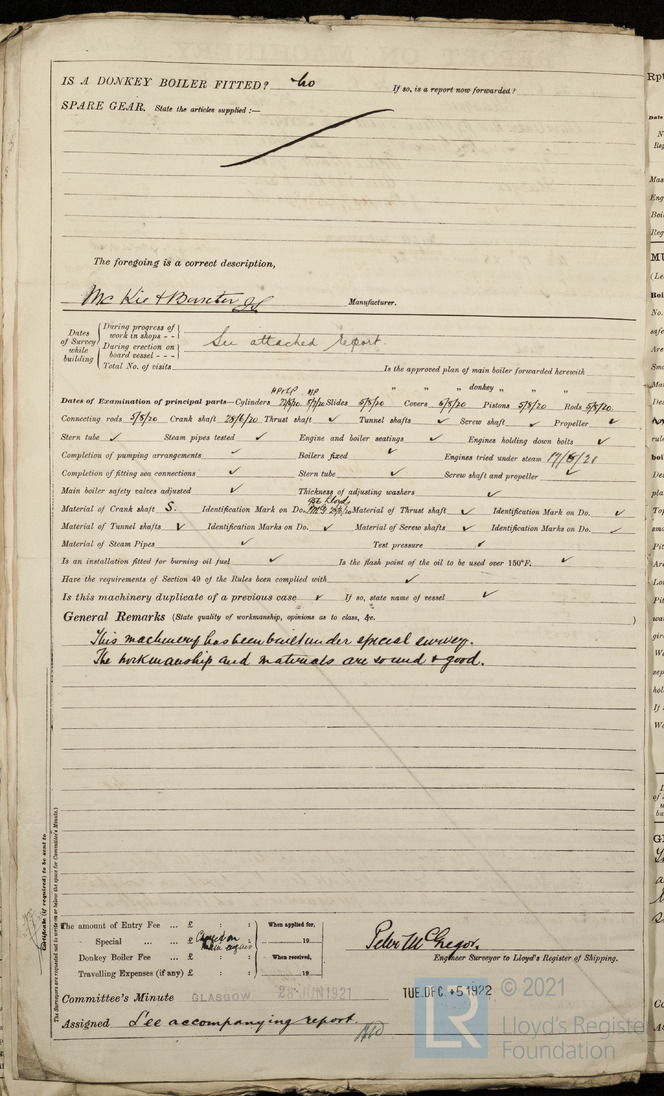 IS A DONKEY BOILER FITTED? No If so, is a report now forwarded?
SPARE GEAR. State the articles supplied:—
The foregoing is a correct description,
Mc Kie & Baxter Ld Manufacturer.
Dates of Survey while building
During progress of work in shops - -
During erection on board vessel - - -
Total No. of visits
See attached report.
Is the approved plan of main boiler forwarded herewith
" " " donkey " " "
HP & LP MP
Dates of Examination of principal parts—Cylinders Slides 5/8/20 Covers 6/8/20 Pistons 5/8/20 Rods 5/8/20
Connecting rods 5/8/20 Crank shaft 28/6/20 Thrust shaft ✓ Tunnel shafts ✓ Screw shaft ✓ Propeller ✓
Stern tube ✓ Steam pipes tested ✓ Engine and boiler seatings ✓ Engines holding down bolts ✓
Completion of pumping arrangements ✓ Boilers fixed ✓ Engines tried under steam
Completion of fitting sea connections ✓ Stern tube ✓ Screw shaft and propeller ✓
Main boiler safety valves adjusted ✓ Thickness of adjusting washers ✓
Material of Crank shaft S. Identification Mark on Do. Lloyds Material of Thrust shaft ✓ Identification Mark on Do. ✓
Material of Tunnel shafts ✓ Identification Marks on Do. ✓ Material of Screw shafts ✓ Identification Marks on Do. ✓
Material of Steam Pipes ✓ Test pressure ✓
Is an installation fitted for burning oil fuel ✓ Is the flash point of the oil to be used over 150°F. ✓
Have the requirements of Section 49 of the Rules been complied with ✓
Is this machinery duplicate of a previous case ✓ If so, state name of vessel ✓
General Remarks (State quality of workmanship, opinions as to class, &c. )
This machinery has been built under special survey.
The workmanship and materials are sound & good.
Certificate (if required) to be sent to
The Surveyors are requested not to write on or below the space for Committee's Minute.
The amount of Entry Fee ... £ : : When applied for,
Special ... ... £ : : 19
Donkey Boiler Fee ... £ : : When received,
Travelling Expenses (if any) £ : : 19
Peter McGregor.
Engineer Surveyor to Lloyd's Register of Shipping.
Committee's Minute GLASGOW 28 JUN 1921 TUE. DEC. 5 1922
Assigned See accompanying report
© 2021
LR
Lloyd's Register
Foundation